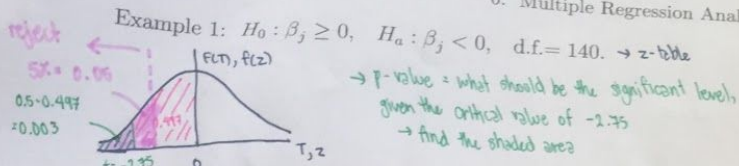 6. Multiple Regression Anal
Example 1: H₀ : βⱼ ≥ 0, Hₐ : βⱼ < 0, d.f.= 140. → z-table
reject
5% = 0.05
F(T), f(z)
0.5-0.497
=0.003
0.497
→ p-value = what should be the significant level,
given the critical value of -2.75
→ find the shaded area
-2.75
0
T, z